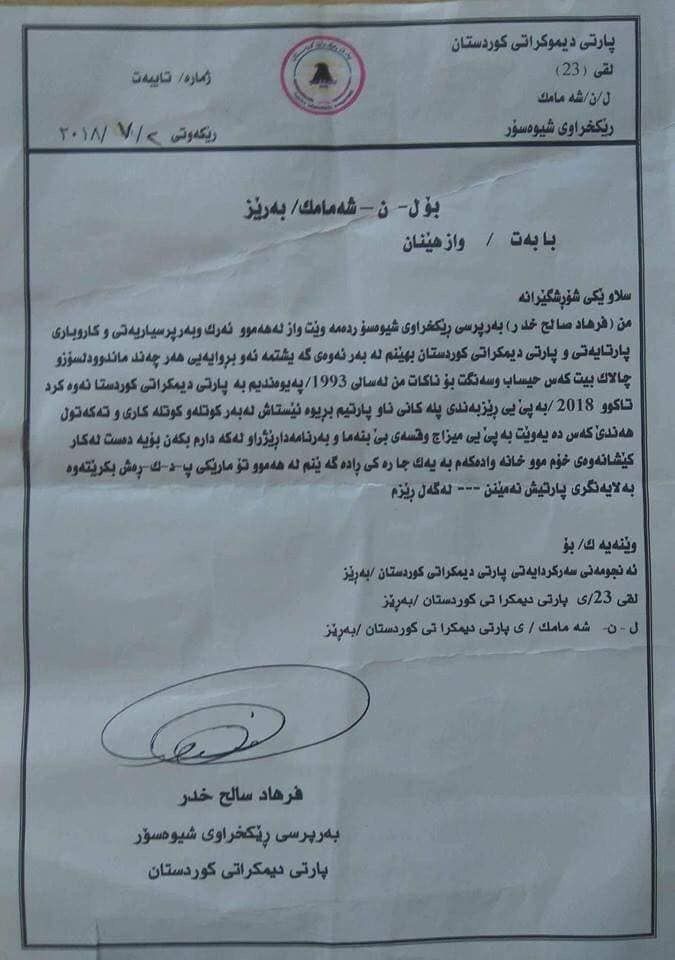 پارتی دیموکراتی کوردستان
لقی (23)
ل/ن/شه مامك
ڕێکخراوی شیوەسۆر
ژمارە/ تایبەت
ڕێکەوتی ٢/ ٧/ ٢٠١٨
بۆ ل- ن – شەمامك/ بەڕێز
بابەت / واز هێنان
سلاو ێکی شۆڕشگێرانە
من (فرهاد صالح خدر) بەرپرسی ڕێکخراوی شیوەسۆر ردەمە وێت واز لەهەموو ئەرك وبەرپرسیاریەتی و کاروباری
پارتایەتی و پارتی دیمکراتی کوردستان بهێنم لە بەر ئەوەی گە یشتمە ئەو بڕوایەیی هەر چەند ماندوودلسۆزو
چالاك بیت کەس حیساب وسەنگت بۆ ناکات من لەسالی 1993/پەیوەندیم بە پارتی دیمکراتی کوردستا نەوە کرد
تاکوو 2018 /بەپێ یی ڕێزبەندی پلە کانی ناو پارتیم بڕیوە ئێستاش لەبەر کوتلەو کوتلە کاری و تەکەتول
هەندێ کەس دە یەوێت بە پێ یی میزاج وقسەی بێ بنەما و بەرنامەداڕێژراو لەکە دارم بکەن بۆیە دەست لەکار
کێشانەوەی خۆم موو خانە وادەکەم بە یەك جا رە کی ڕادە گە ێنم لە هەموو تۆ مارێکی پ-د-ك-ڕەش بکرێتەوە
بەلایەنگری پارتیش نەمێنن --- لەگەل ڕێزم
وێنەیە ك/ بۆ
ئە نجومەنی سەرکردایەتی پارتی دیمکراتی کوردستان /بەڕێز
لقی 23/ی پارتی دیمکرا تی کوردستان /بەڕێز
ل - ن- شە مامك / ی پارتی دیمکرا تی کوردستان /بەڕێز
فرهاد سالح خدر
بەرپرسی ڕێکخراوی شیوەسۆر
پارتی دیمکراتی کوردستان